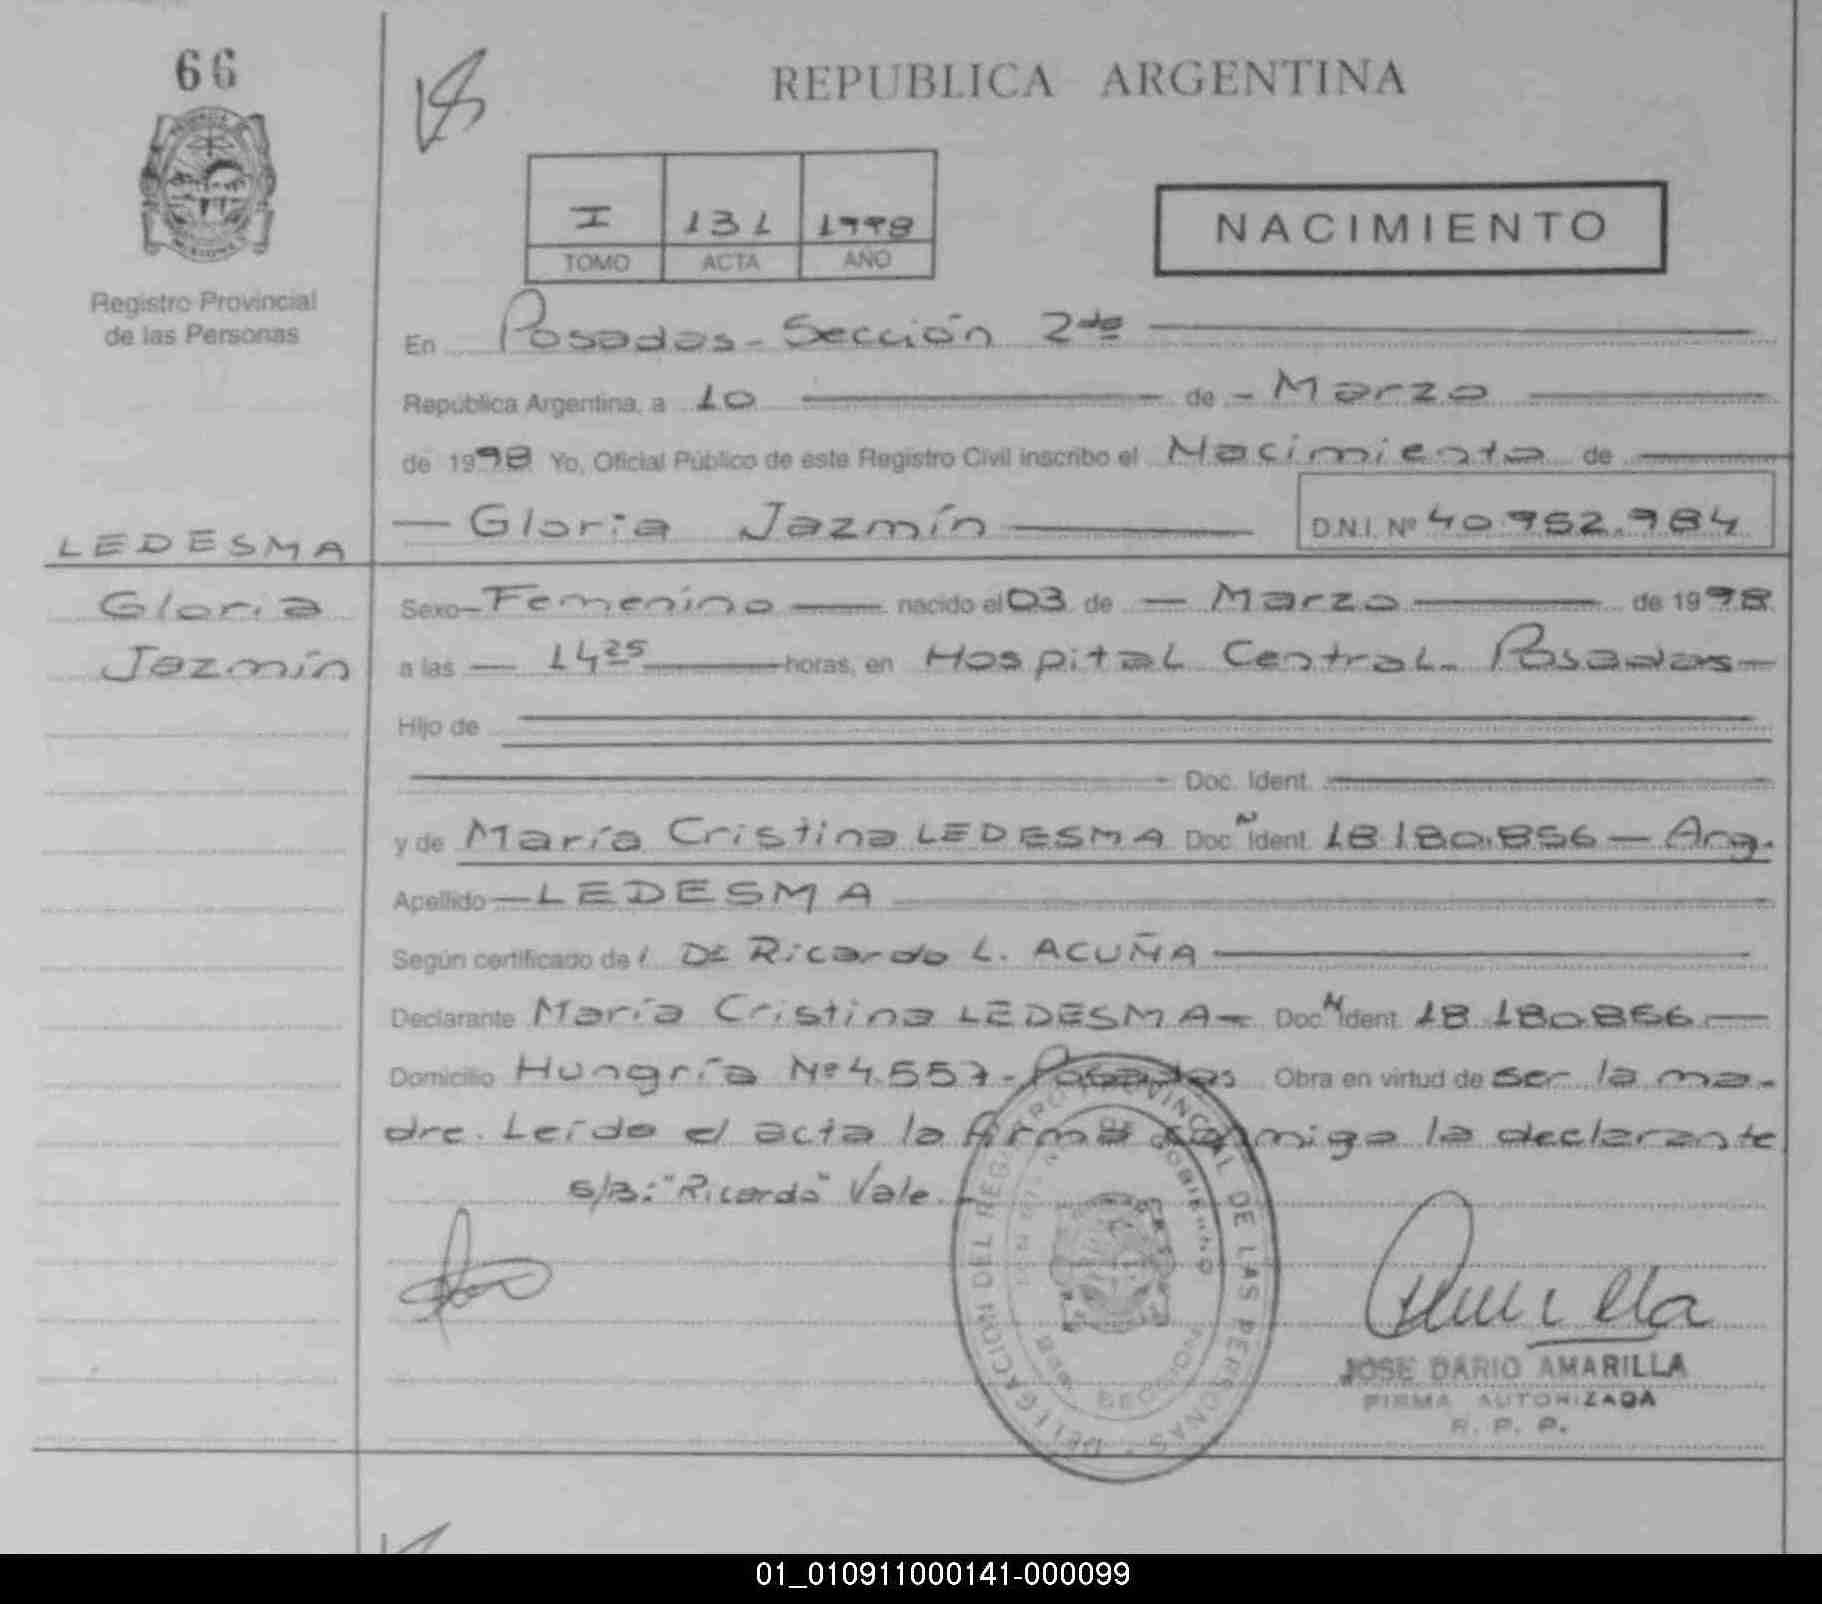 66
REPUBLICA ARGENTINA
I 131 1998
TOMO ACTA AÑO
NACIMIENTO
Registro Provincial
de las Personas
En Posadas - Sección 2da
República Argentina, a 10 de - Marzo
de 1998 Yo, Oficial Público de este Registro Civil inscribo el Nacimiento de
LEDESMA
— Gloria Jazmín — D.N.I. Nº 40.952.984
Gloria
Jazmín
Sexo — Femenino — nacido el 03 de — Marzo — de 1998
a las — 14 25 — horas, en Hospital Central - Posadas —
Hijo de
Doc. Ident.
y de María Cristina LEDESMA Doc. N Ident. 18.180.856 — Arg.
Apellido — LEDESMA
Según certificado del Dr Ricardo L. ACUÑA
Declarante María Cristina LEDESMA — Doc. N Ident. 18.180.856 —
Domicilio Hungría Nº 4.557 - Posadas Obra en virtud de ser la ma-
dre. Leído el acta la firma conmigo la declarante
S/B: "Ricardo" Vale.
DELEGACION DEL REGISTRO PROVINCIAL DE LAS PERSONAS
SECCION
JOSE DARIO AMARILLA
FIRMA AUTORIZADA
R. P. P.
01_010911000141-000099